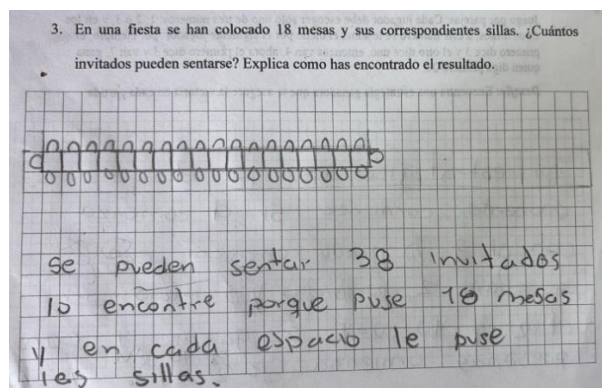 3. En una fiesta se han colocado 18 mesas y sus correspondientes sillas. ¿Cuántos
invitados pueden sentarse? Explica como has encontrado el resultado.
se pueden sentar 38 invitados
lo encontre porque puse 18 mesas
y en cada espacio le puse
les sillas.